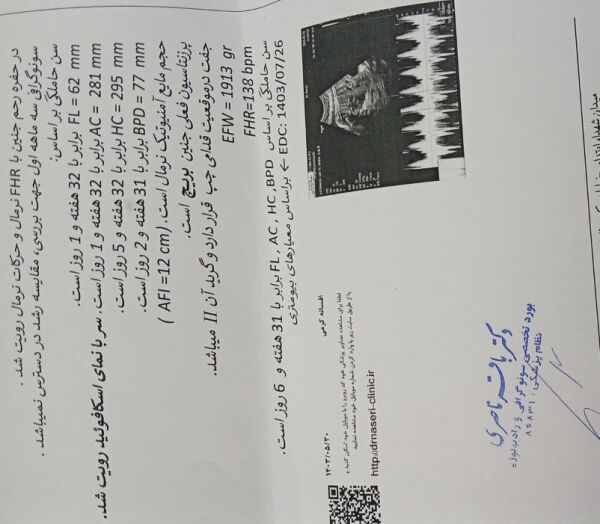 در حفره رحم جنین با FHR نرمال و حرکات نرمال رویت شد.
سونوگرافی سه ماهه اول جهت بررسی، مقایسه رشد در دسترس نمیباشد.
سن حاملگی بر اساس:
FL = 62 mm برابر با 32 هفته و 1 روز است.
AC = 281 mm برابر با 32 هفته و 1 روز است. سر با نمای اسکافوئید رویت شد.
HC = 295 mm برابر با 32 هفته و 5 روز است.
BPD = 77 mm برابر با 31 هفته و 2 روز است.
حجم مایع آمنیوتیک نرمال است. (AFI =12 cm)
پرزنتاسیون فعلی جنین بریچ است.
جفت درموقعیت قدامی چپ قرار دارد و گرید آن II میباشد.
EFW = 1913 gr
FHR=138 bpm
سن حاملگی بر اساس FL , AC , HC ,BPD برابر با 31 هفته و 6 روز است.
EDC: 1403/07/26 ← براساس معیارهای بیومتری
افسانه کرمی
۱۴۰۳/۰۵/۳۰
http://drnaseri-clinic.ir
دکتر یافته ناصری
بورد تخصصی سونوگرافی و رادیولوژی
نظام پزشکی: ۸۶۸۳۱
میدان شهدا، ابتدای